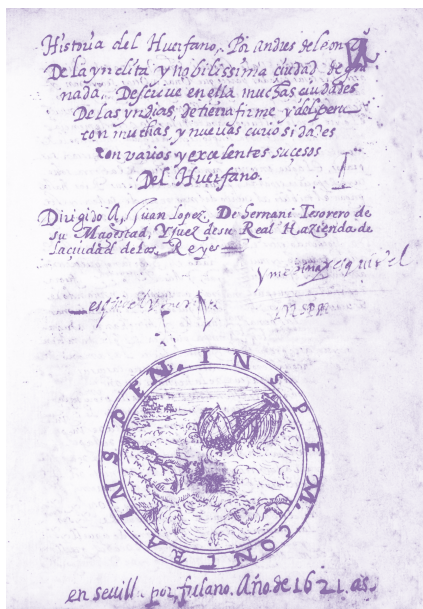 Historia del Huerfano, Por andres de leon
De la ynclita y nobilissima ciudad de gra
nada, Descriue en ella muchas ciudades
De las yndias, de tierra firme y del peru
con muchas y nueuas curiosidades
con varios y excelentes sucesos
Del Huerfano.
Dirigido A, Juan Lopez De hernani Tesorero de
su Magestad, Y juez de su Real Hazienda de
la ciudad de los Reyes
IN SPEM. CONTRA IN SPEN.
en sevilla por fulano. Año de 1621. as.